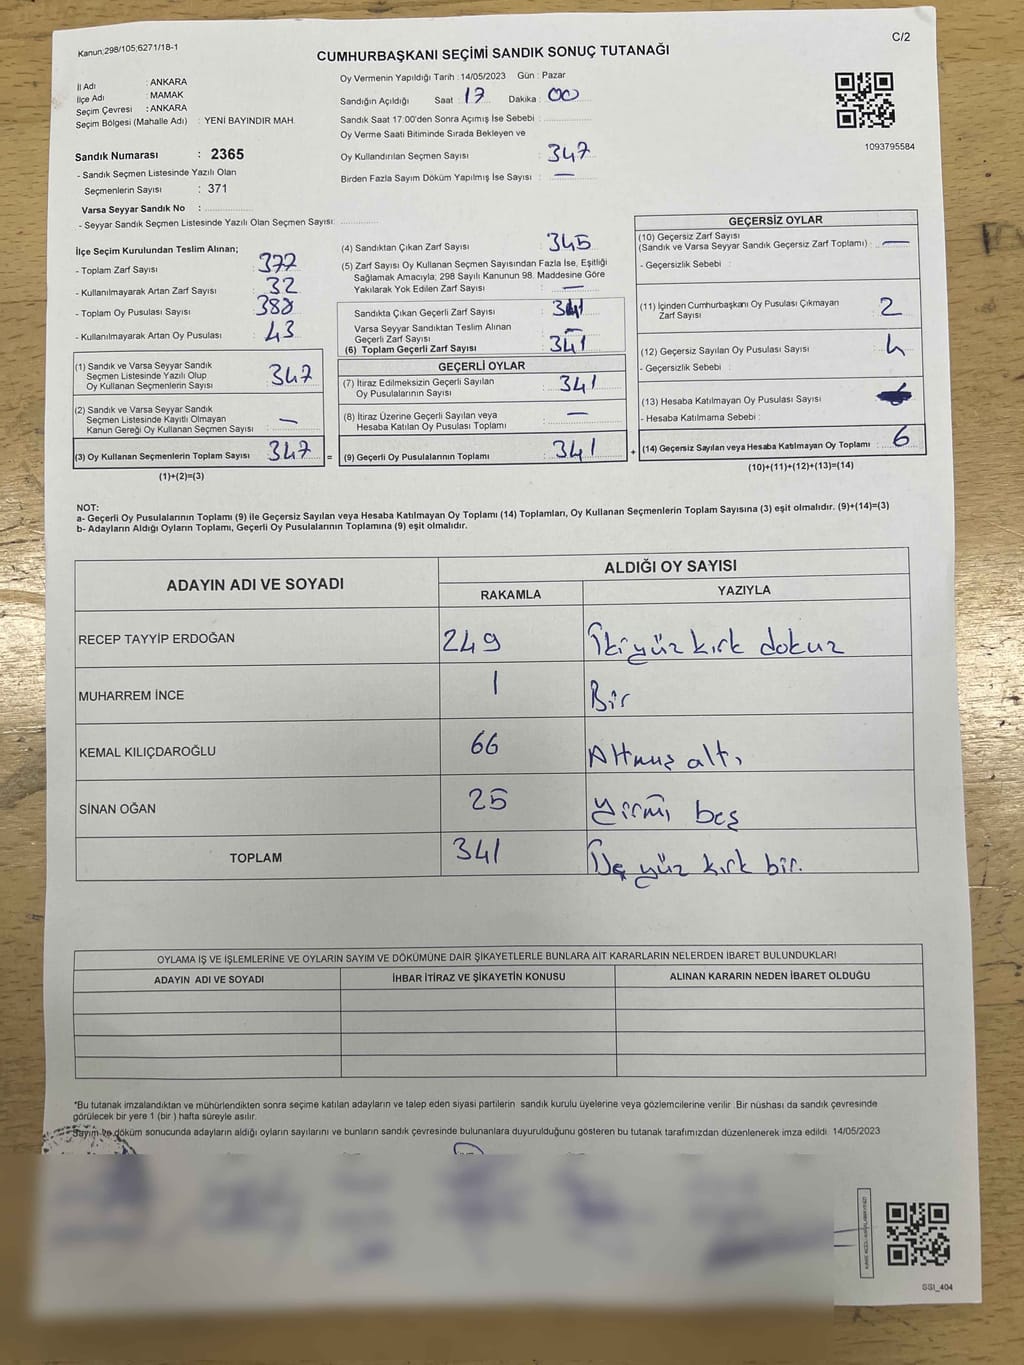 Kanun;298/105;6271/18-1
C/2
CUMHURBAŞKANI SEÇİMİ SANDIK SONUÇ TUTANAĞI
İl Adı : ANKARA
İlçe Adı : MAMAK
Seçim Çevresi : ANKARA
Seçim Bölgesi (Mahalle Adı) : YENİ BAYINDIR MAH.
Sandık Numarası : 2365
- Sandık Seçmen Listesinde Yazılı Olan
Seçmenlerin Sayısı : 371
Varsa Seyyar Sandık No :
- Seyyar Sandık Seçmen Listesinde Yazılı Olan Seçmen Sayısı:
Oy Vermenin Yapıldığı Tarih : 14/05/2023 Gün : Pazar
Sandığın Açıldığı Saat : 17 Dakika : 00
Sandık Saat 17:00'den Sonra Açımış İse Sebebi :
Oy Verme Saati Bitiminde Sırada Bekleyen ve
Oy Kullandırılan Seçmen Sayısı : 347
Birden Fazla Sayım Döküm Yapılmış İse Sayısı : —
1093795584
İlçe Seçim Kurulundan Teslim Alınan;
- Toplam Zarf Sayısı : 377
- Kullanılmayarak Artan Zarf Sayısı : 32
- Toplam Oy Pusulası Sayısı : 388
- Kullanılmayarak Artan Oy Pusulası : 43
(1) Sandık ve Varsa Seyyar Sandık
Seçmen Listesinde Yazılı Olup
Oy Kullanan Seçmenlerin Sayısı : 347
(2) Sandık ve Varsa Seyyar Sandık
Seçmen Listesinde Kayıtlı Olmayan
Kanun Gereği Oy Kullanan Seçmen Sayısı : —
(3) Oy Kullanan Seçmenlerin Toplam Sayısı : 347
(1)+(2)=(3)
(4) Sandıktan Çıkan Zarf Sayısı : 345
(5) Zarf Sayısı Oy Kullanan Seçmen Sayısından Fazla İse, Eşitliği
Sağlamak Amacıyla; 298 Sayılı Kanunun 98. Maddesine Göre
Yakılarak Yok Edilen Zarf Sayısı : —
Sandıkta Çıkan Geçerli Zarf Sayısı : 341
Varsa Seyyar Sandıktan Teslim Alınan
Geçerli Zarf Sayısı : —
(6) Toplam Geçerli Zarf Sayısı : 341
GEÇERLİ OYLAR
(7) İtiraz Edilmeksizin Geçerli Sayılan
Oy Pusulalarının Sayısı : 341
(8) İtiraz Üzerine Geçerli Sayılan veya
Hesaba Katılan Oy Pusulası Toplamı : —
= (9) Geçerli Oy Pusulalarının Toplamı : 341
GEÇERSİZ OYLAR
(10) Geçersiz Zarf Sayısı
(Sandık ve Varsa Seyyar Sandık Geçersiz Zarf Toplamı) : —
- Geçersizlik Sebebi :
(11) İçinden Cumhurbaşkanı Oy Pusulası Çıkmayan
Zarf Sayısı : 2
(12) Geçersiz Sayılan Oy Pusulası Sayısı : 4
- Geçersizlik Sebebi :
(13) Hesaba Katılmayan Oy Pusulası Sayısı :
- Hesaba Katılmama Sebebi :
+ (14) Geçersiz Sayılan veya Hesaba Katılmayan Oy Toplamı : 6
(10)+(11)+(12)+(13)=(14)
NOT:
a- Geçerli Oy Pusulalarının Toplamı (9) ile Geçersiz Sayılan veya Hesaba Katılmayan Oy Toplamı (14) Toplamları, Oy Kullanan Seçmenlerin Toplam Sayısına (3) eşit olmalıdır. (9)+(14)=(3)
b- Adayların Aldığı Oyların Toplamı, Geçerli Oy Pusulalarının Toplamına (9) eşit olmalıdır.
ADAYIN ADI VE SOYADI
ALDIĞI OY SAYISI
RAKAMLA YAZIYLA
RECEP TAYYİP ERDOĞAN 249 İkiyüz kırk dokuz
MUHARREM İNCE 1 Bir
KEMAL KILIÇDAROĞLU 66 Altmış altı
SİNAN OĞAN 25 Yirmi beş
TOPLAM 341 Üç yüz kırk bir.
OYLAMA İŞ VE İŞLEMLERİNE VE OYLARIN SAYIM VE DÖKÜMÜNE DAİR ŞİKAYETLERLE BUNLARA AİT KARARLARIN NELERDEN İBARET BULUNDUKLARI
ADAYIN ADI VE SOYADI İHBAR İTİRAZ VE ŞİKAYETİN KONUSU ALINAN KARARIN NEDEN İBARET OLDUĞU
*Bu tutanak imzalandıktan ve mühürlendikten sonra seçime katılan adayların ve talep eden siyasi partilerin sandık kurulu üyelerine veya gözlemcilerine verilir. Bir nüshası da sandık çevresinde
görülecek bir yere 1 (bir ) hafta süreyle asılır.
Sayım ve döküm sonucunda adayların aldığı oyların sayılarını ve bunların sandık çevresinde bulunanlara duyurulduğunu gösteren bu tutanak tarafımızdan düzenlenerek imza edildi. 14/05/2023
SSI_404